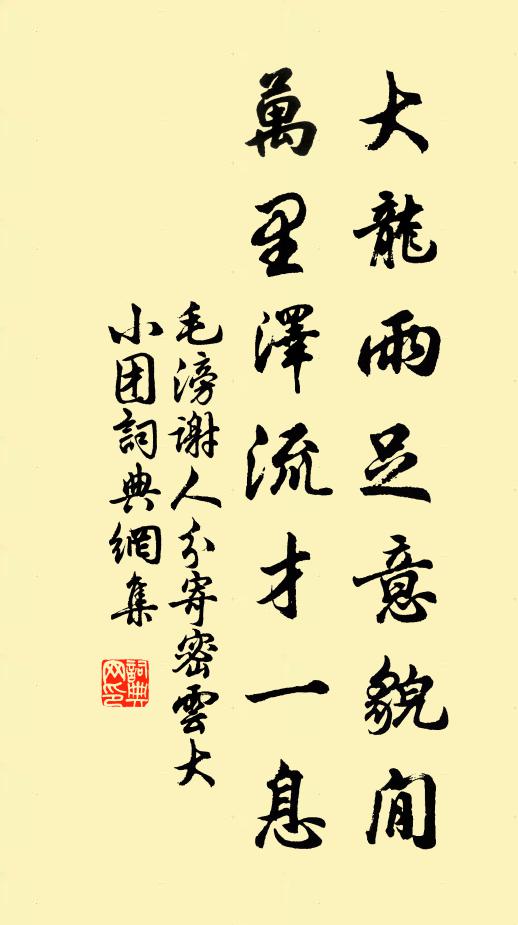 大龍雨足意貌閒
萬里澤流才一息
毛滂謝人分寄密雲大
小团詞典網集
詞典网印